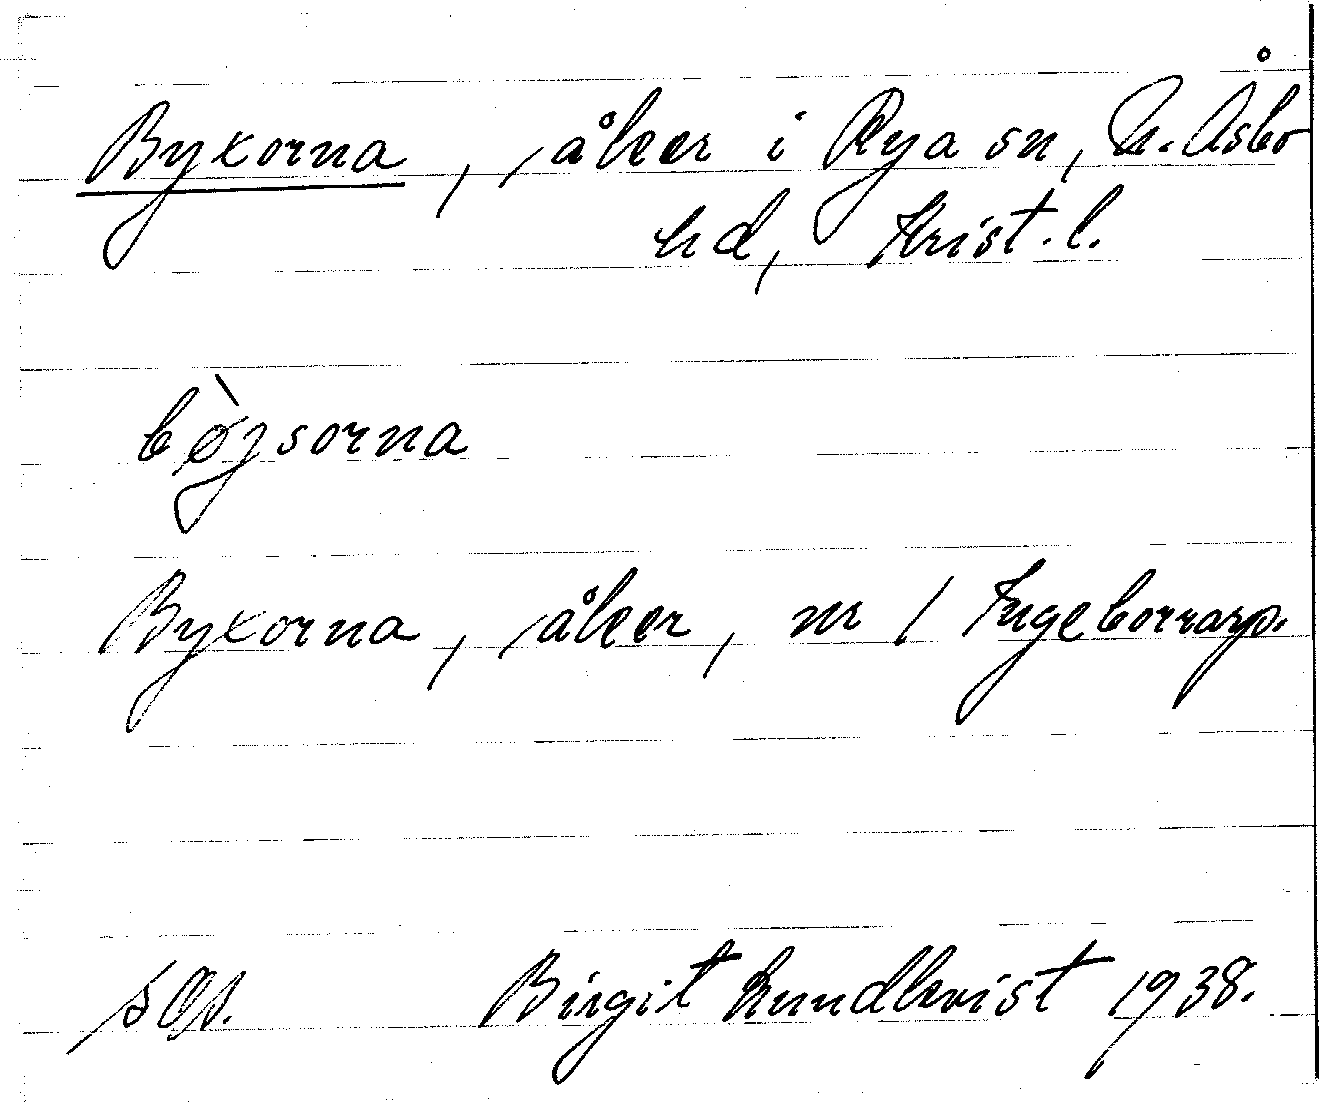 Byxorna, åker i Rya sn, N. Åsbo
hd, Krist. l.
bø̀jsorna
Byxorna, åker, nr 1 Ingeborrarp.
Birgit Lundkvist 1938.